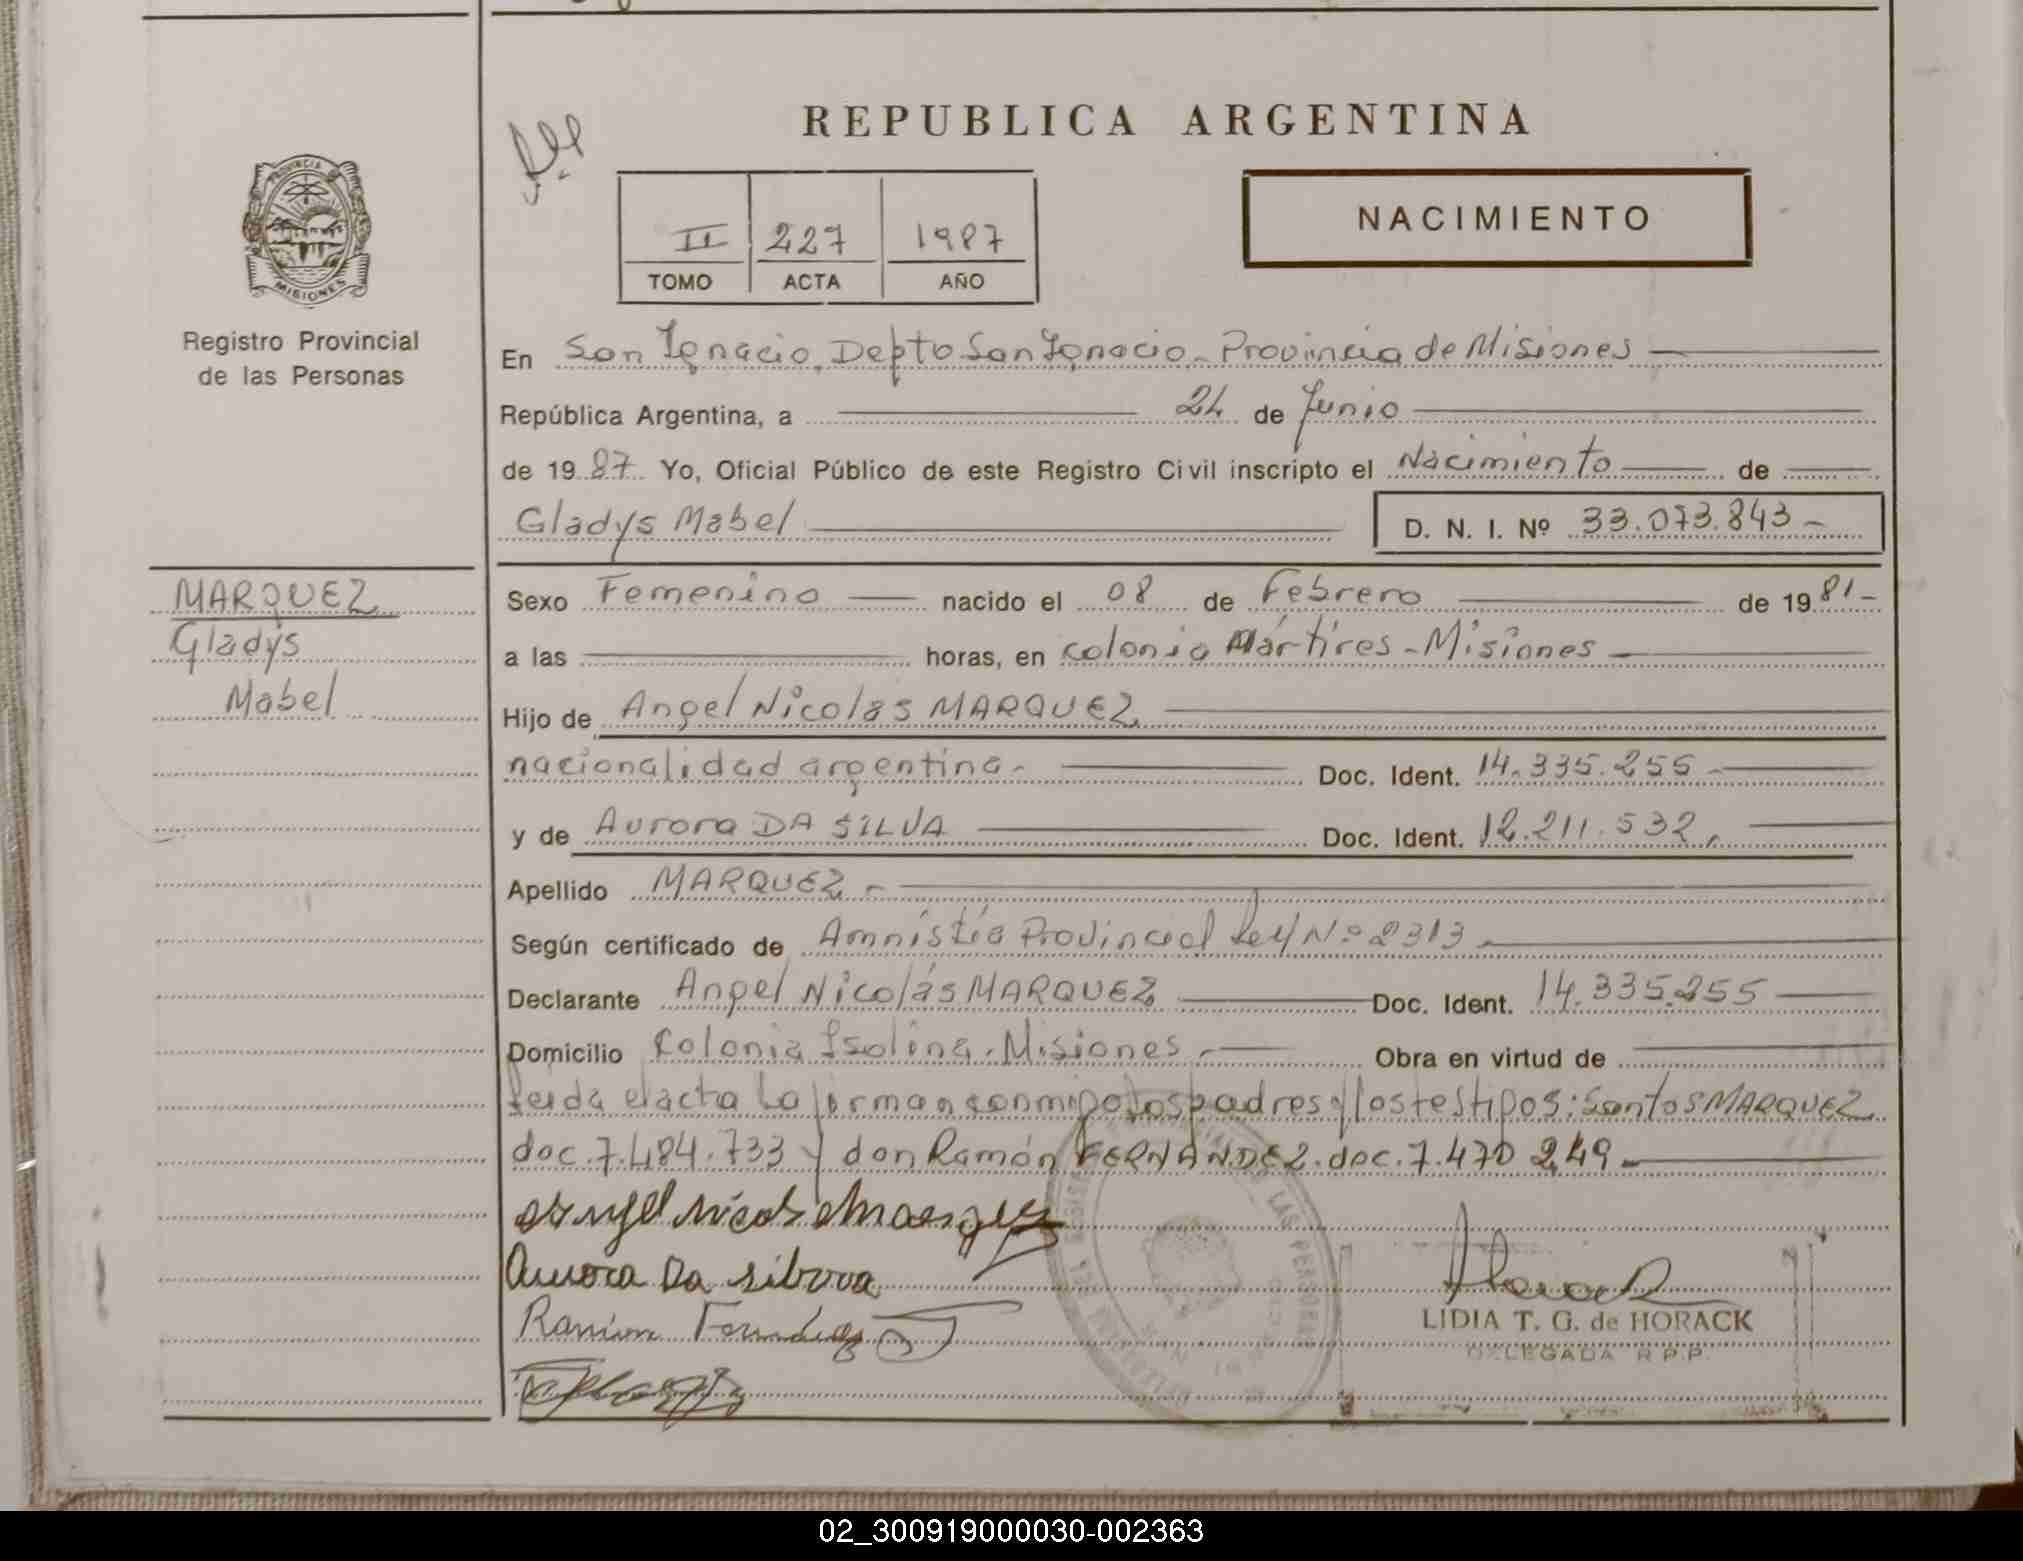 REPUBLICA ARGENTINA
PROVINCIA
MISIONES
Registro Provincial
de las Personas
II 227 1987
TOMO ACTA AÑO
NACIMIENTO
En San Ignacio, Depto San Ignacio - Provincia de Misiones
República Argentina, a 24 de Junio
de 1987 Yo, Oficial Público de este Registro Civil inscripto el Nacimiento de
Gladys Mabel D. N. I. Nº 33.073.843-
MARQUEZ
Gladys
Mabel
Sexo Femenino nacido el 08 de Febrero de 1981-
a las horas, en colonia Mártires - Misiones
Hijo de Angel Nicolas MARQUEZ
nacionalidad argentina - Doc. Ident. 14.335.255-
y de Aurora DA SILVA Doc. Ident. 12.211.532.
Apellido MARQUEZ -
Según certificado de Amnistía Provincial Ley Nº 2313
Declarante Angel Nicolás MARQUEZ Doc. Ident. 14.335.255
Domicilio Colonia Isolina - Misiones - Obra en virtud de
Leida el acta la firman conmigo los padres y los testigos: Santos MARQUEZ
doc. 7.484.733 y don Ramón FERNANDEZ. doc. 7.470 249-
Aurora Da silvva
Ramón Fernández
LIDIA T. G. de HORACK
DELEGADA R.P.P.
02_300919000030-002363